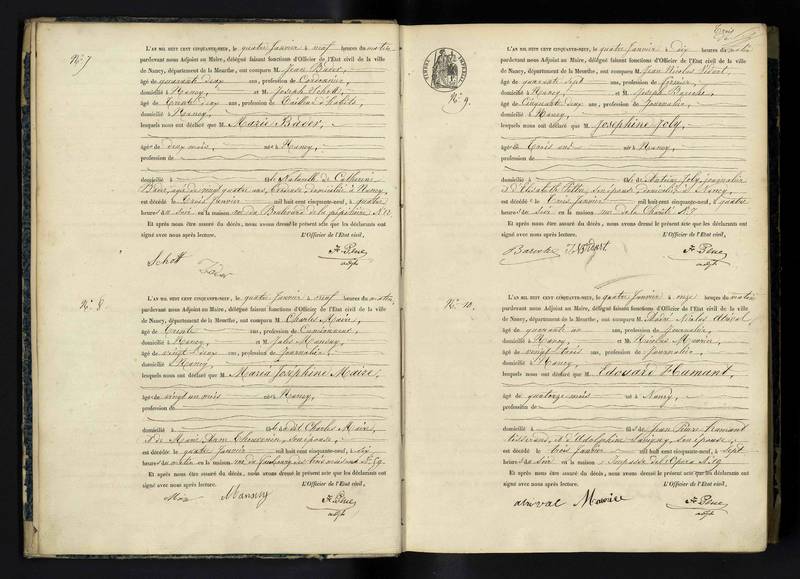 N.° 7
L'AN MIL HUIT CENT CINQUANTE-NEUF, le quatre Janvier à neuf heures du matin
pardevant nous Adjoint au Maire, délégué faisant fonctions d'Officier de l'Etat civil de la ville
de Nancy, département de la Meurthe, ont comparu M. Jean Bader,
âgé de quarante deux ans, profession de Cordonnier,
domicilié à Nancy, et M. Joseph Schott,
âgé de Trente deux ans, profession de Tailleur d'habits,
domicilié à Nancy,
lesquels nous ont déclaré que M. Marie Bader,
âgée de deux mois, née à Nancy,
profession de
domicilié à fille Naturelle de Catherine
Bader, âgée de vingt quatre ans, domiciliée à Nancy
est décédée le trois Janvier mil huit cent cinquante-neuf, à quatre
heures du soir en la maison rue du Boulevard de la pépinière, N. 12
Et après nous être assuré du décès, nous avons dressé le présent acte que les déclarants ont
signé avec nous après lecture. L'Officier de l'Etat civil,
Schott
N.° 8.
L'AN MIL HUIT CENT CINQUANTE-NEUF, le quatre Janvier à neuf heures du matin,
pardevant nous Adjoint au Maire, délégué faisant fonctions d'Officier de l'Etat civil de la ville
de Nancy, département de la Meurthe, ont comparu M. Charles Maire,
âgé de trente ans, profession de
domicilié à Nancy, et M. Jules Mansuy,
âgé de vingt deux ans, profession de Journalier,
domicilié à Nancy,
lesquels nous ont déclaré que M. Maria Josephine Maire,
âgée de vingt un mois née à Nancy,
profession de
domicilié à fille dudit Charles Maire,
et de Marie Anne Thouvenin, son épouse,
est décédée le quatre Janvier mil huit cent cinquante-neuf, à six
heures du matin en la maison rue du Faubourg des trois maisons N.° 59.
Et après nous être assuré du décès, nous avons dressé le présent acte que les déclarants ont
signé avec nous après lecture. L'Officier de l'Etat civil,
Mansuy
Trois
TIMBRE IMPERIAL
N.° 9.
L'AN MIL HUIT CENT CINQUANTE-NEUF, le quatre Janvier à dix heures du matin
pardevant nous Adjoint au Maire, délégué faisant fonctions d'Officier de l'Etat civil de la ville
de Nancy, département de la Meurthe, ont comparu M. Jean Nicolas
âgé de quarante sept ans, profession de
domicilié à Nancy et M. Joseph
âgé de Cinquante deux ans, profession de Journalier,
domicilié à Nancy,
lesquels nous ont déclaré que M. Josephine Joly,
âgée de trois ans née à Nancy,
profession de
domicilié à fille de Antoine Joly, journalier
et d'Elisabeth son épouse domiciliés à Nancy,
est décédée le trois Janvier mil huit cent cinquante-neuf, à quatre
heures du soir en la maison rue de la Charité N. 7
Et après nous être assuré du décès, nous avons dressé le présent acte que les déclarants ont
signé avec nous après lecture. L'Officier de l'Etat civil,
N.° 10.
L'AN MIL HUIT CENT CINQUANTE-NEUF, le quatre Janvier à onze heures du matin
pardevant nous Adjoint au Maire, délégué faisant fonctions d'Officier de l'Etat civil de la ville
de Nancy, département de la Meurthe, ont comparu M. Nicolas
âgé de quarante un ans, profession de Journalier,
domicilié à Nancy, et M. Nicolas
âgé de vingt trois ans, profession de Journalier,
domicilié à Nancy,
lesquels nous ont déclaré que M. Edouard Humant,
âgé de quatorze mois né à Nancy,
profession de
domicilié à fils de Jean Pierre Humant
Tisserand, et d'Adolphine son épouse,
est décédé le trois Janvier mil huit cent cinquante-neuf, à sept
heures du soir en la maison Impasse de l'Opéra N. 19
Et après nous être assuré du décès, nous avons dressé le présent acte que les déclarants ont
signé avec nous après lecture. L'Officier de l'Etat civil,